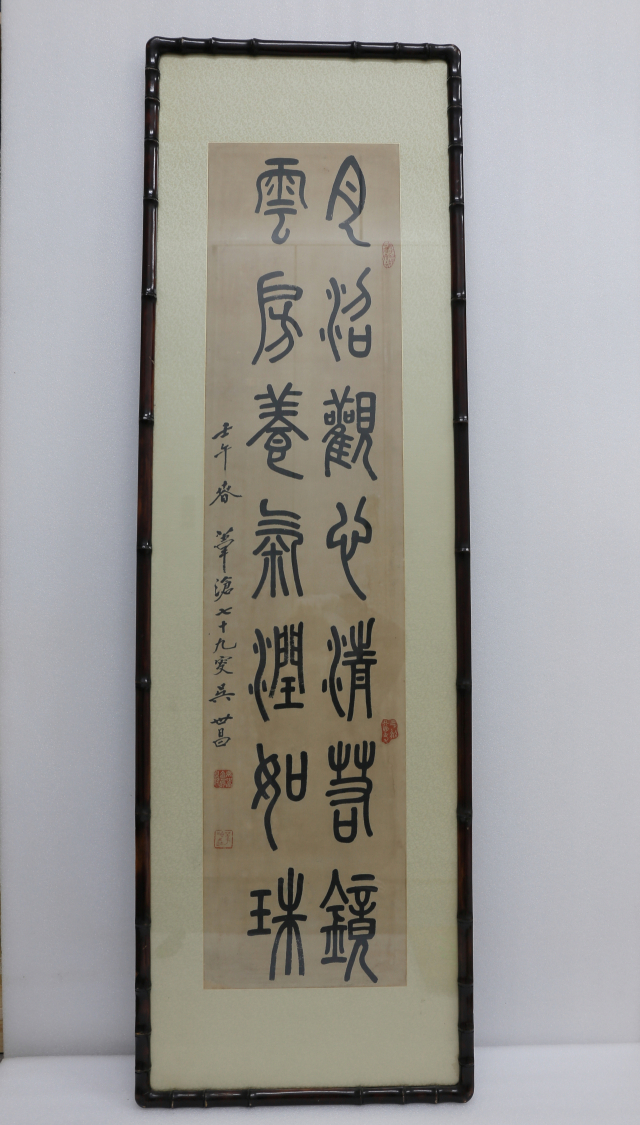 月沼觀心清若鏡
雲房養氣潤如珠
壬午春 華滄七十九叟吳世昌